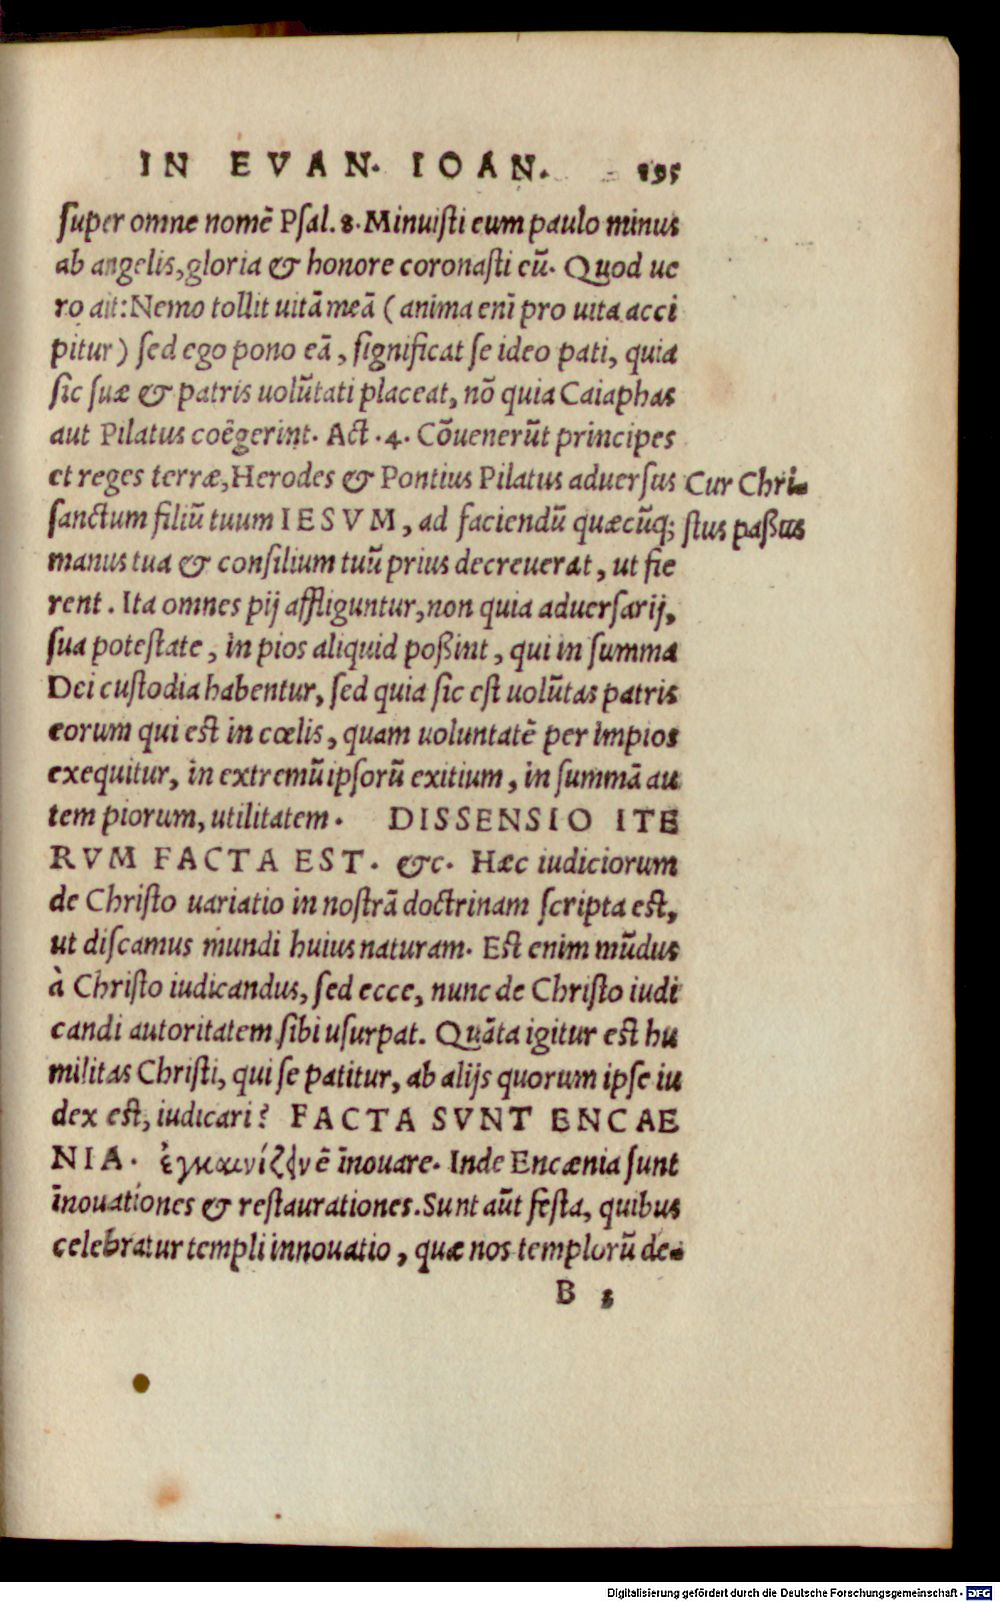 IN EVAN. IOAN. 195
super omne nomē Psal. 8. Minuisti eum paulo minus
ab angelis, gloria & honore coronasti eū. Quod ue
ro ait: Nemo tollit uitā meā ( anima eni̅ pro uita acci
pitur ) sed ego pono eā, significat se ideo pati, quia
sic suæ & patris uolūtati placeat, nō quia Caiaphas
aut Pilatus coēgerint. Act .4. Cōuenerūt principes
et reges terræ, Herodes & Pontius Pilatus aduersus
Cur Chri-
sanctum filiū tuum IESVM, ad faciendū quæcūq;
stus paßus
manus tua & consilium tuū prius decreuerat, ut fie
rent. Ita omnes pij affliguntur, non quia aduersarij,
sua potestate, in pios aliquid poßint, qui in summa
Dei custodia habentur, sed quia sic est uolūtas patris
eorum qui est in cœlis, quam uoluntatē per impios
exequitur, in extremū ipsorū exitium, in summā au
tem piorum, utilitatem. DISSENSIO ITE
RVM FACTA EST. &c. Hæc iudiciorum
de Christo uariatio in nostrā doctrinam scripta est,
ut discamus mundi huius naturam. Est enim mūdus
à Christo iudicandus, sed ecce, nunc de Christo iudi
candi autoritatem sibi usurpat. Quāta igitur est hu
militas Christi, qui se patitur, ab alijs quorum ipse iu
dex est, iudicari? FACTA SVNT ENCAE
NIA. ἐγκαινίζειν ē īnouare. Inde Encænia sunt
īnouationes & restaurationes. Sunt aūt festa, quibus
celebratur templi innouatio, quæ nos templorū de-
B 2
Digitalisierung gefördert durch die Deutsche Forschungsgemeinschaft - DFG